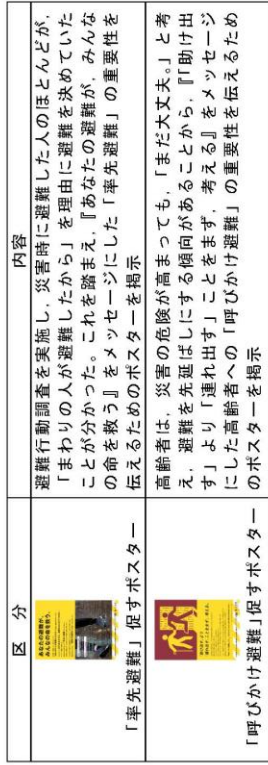 区　分
内容
あなたの避難が、
みんなの命を救う。
「率先避難」促すポスター
避難行動調査を実施し，災害時に避難した人のほとんどが，
「まわりの人が避難したから」を理由に避難を決めていた
ことが分かった。これを踏まえ，『あなたの避難が，みんな
の命を救う』をメッセージにした「率先避難」の重要性を
伝えるためのポスターを掲示
「呼びかけ避難」促すポスター
高齢者は，災害の危険が高まっても，「まだ大丈夫。」と考
え，避難を先延ばしにする傾向があることから，『「助け出
す」より「連れ出す」ことをまず，考える』をメッセージ
にした高齢者への「呼びかけ避難」の重要性を伝えるため
のポスターを掲示